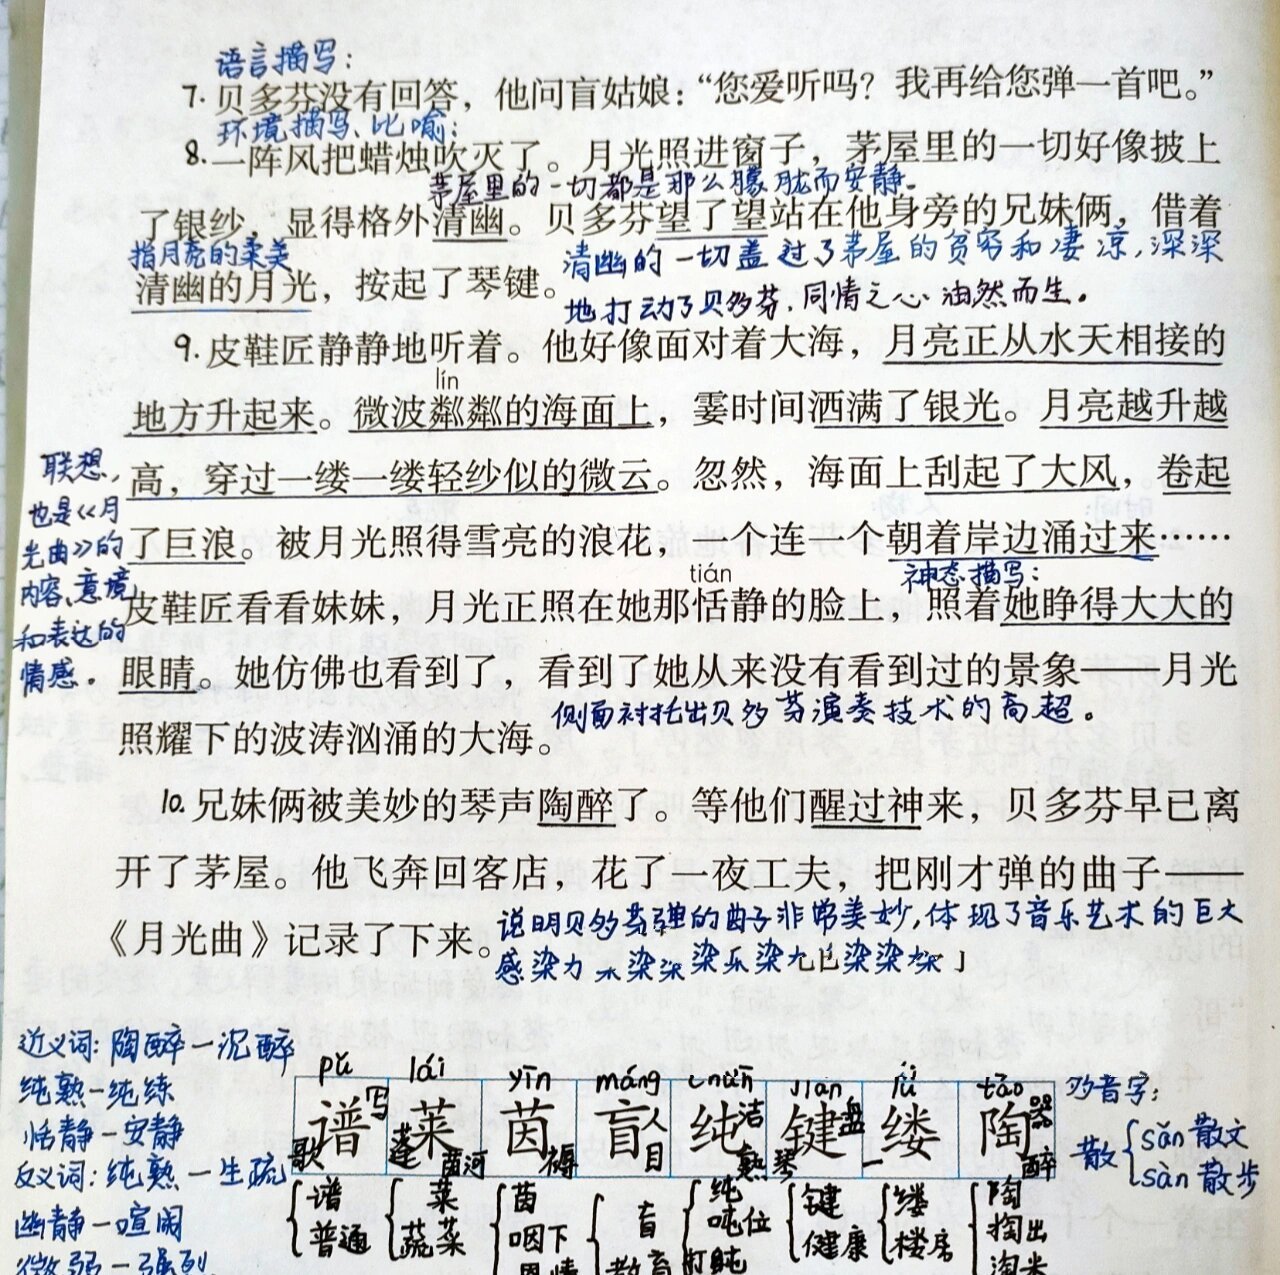 语言描写：
7.贝多芬没有回答，他问盲姑娘：“您爱听吗？我再给您弹一首吧。”
环境描写、比喻：
8.一阵风把蜡烛吹灭了。月光照进窗子，茅屋里的一切好像披上
茅屋里的一切都是那么朦胧而安静。
了银纱，显得格外清幽。贝多芬望了望站在他身旁的兄妹俩，借着
指月亮的柔美
清幽的一切盖过了茅屋的贫穷和凄凉，深深
清幽的月光，按起了琴键。
地打动了贝多芬，同情之心油然而生。
9.皮鞋匠静静地听着。他好像面对着大海，月亮正从水天相接的
lín
地方升起来。微波粼粼的海面上，霎时间洒满了银光。月亮越升越
高，穿过一缕一缕轻纱似的微云。忽然，海面上刮起了大风，卷起
了巨浪。被月光照得雪亮的浪花，一个连一个朝着岸边涌过来……
联想，
也是《月
光曲》的
内容、意境
和表达的
情感。
tián
神态描写：
皮鞋匠看看妹妹，月光正照在她那恬静的脸上，照着她睁得大大的
眼睛。她仿佛也看到了，看到了她从来没有看到过的景象——月光
侧面衬托出贝多芬演奏技术的高超。
照耀下的波涛汹涌的大海。
10.兄妹俩被美妙的琴声陶醉了。等他们醒过神来，贝多芬早已离
开了茅屋。他飞奔回客店，花了一夜工夫，把刚才弹的曲子——
《月光曲》记录了下来。
说明贝多芬弹的曲子非常美妙，体现了音乐艺术的巨大
感染力
近义词：陶醉—沉醉
纯熟—纯练
恬静—安静
反义词：纯熟—生疏
幽静—喧闹
微弱—强烈
pǔ lái yīn máng chún jiàn lǚ táo
谱 莱 茵 盲 纯 键 缕 陶
歌 写 蓬 茵河 褥 人 目 洁 熟 琴 盘 一 器 醉
谱 莱 茵 盲 纯 键 缕 陶
普通 蔬菜 咽下 教育 吨位 健康 楼房 掏出
多音字：
散 sǎn 散文
sàn 散步